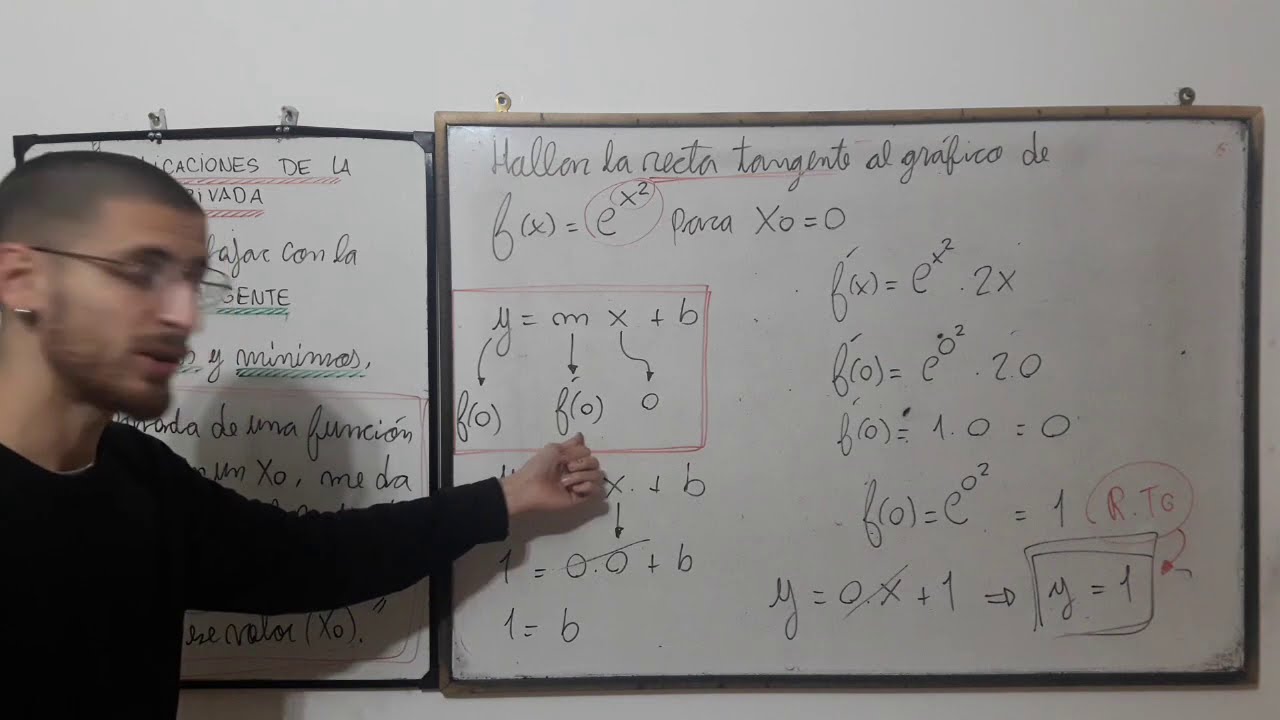 CACIONES DE LA
IVADA
ajar con la
GENTE
y mínimos,
de una función
un Xo, me da
ese valor (Xo)."
Hallar la recta tangente al gráfico de
f(x) = e^x² para Xo = 0
y = m x + b
f(0) f´(0) 0
x . + b
1 = 0.0 + b
1 = b
f´(x) = e^x² . 2x
f´(0) = e^0² . 2.0
f´(0) = 1.0 = 0
f(0) = e^0² = 1
R.TG
y = 0.x + 1 ⇒ y = 1